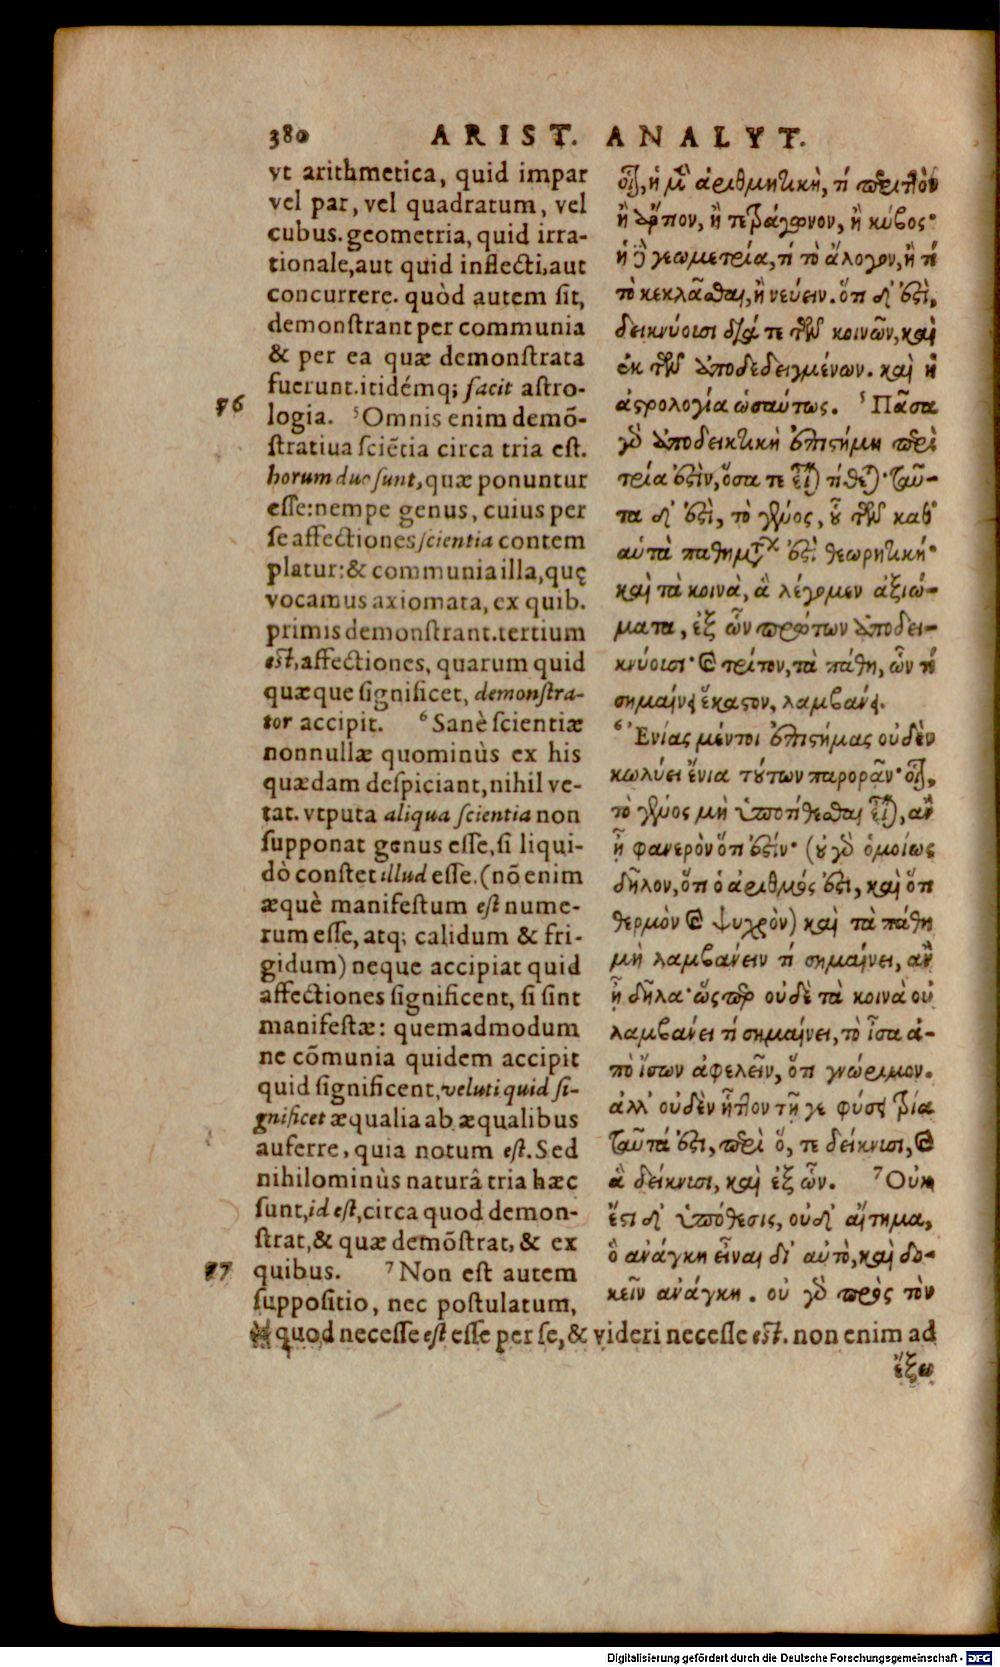 380 ARIST. ANALYT.
vt arithmetica, quid impar
vel par, vel quadratum, vel
cubus. geometria, quid irra-
tionale, aut quid inflecti, aut
concurrere. quòd autem sit,
demonstrant per communia
& per ea quæ demonstrata
fuerunt. itidémq; facit astro-
logia. ⁵Omnis enim demõ-
stratiua sciẽtia circa tria est.
horum duo sunt, quæ ponuntur
esse: nempe genus, cuius per
se affectiones scientia contem
platur: & communia illa, quę
vocamus axiomata, ex quib.
primis demonstrant. tertium
est, affectiones, quarum quid
quæque significet, demonstra-
tor accipit. ⁶Sanè scientiæ
nonnullæ quominùs ex his
quædam despiciant, nihil ve-
tat. vtputa aliqua scientia non
supponat genus esse, si liqui-
dò constet illud esse. (nõ enim
æquè manifestum est nume-
rum esse, atq; calidum & fri-
gidum) neque accipiat quid
affectiones significent, si sint
manifestæ: quemadmodum
ne cõmunia quidem accipit
quid significent, veluti quid si-
gnificet æqualia ab æqualibus
auferre, quia notum est. Sed
nihilominùs naturâ tria hæc
sunt, id est, circa quod demon-
strat, & quæ demõstrat, & ex
quibus. ⁷Non est autem
suppositio, nec postulatum,
quod necesse est esse per se, & videri necesse est. non enim ad
76
77
οἷον, ἡ μὲν ἀριθμητικὴ, τί περιττὸν
ἢ ἄρτιον, ἢ τετράγωνον, ἢ κύβος·
ἡ δὲ γεωμετρία, τί τὸ ἄλογον, ἢ τί
τὸ κεκλᾶσθαι, ἢ νεύειν. ὅτι δ' ἐστὶ,
δεικνύουσι διά τε τῶν κοινῶν, καὶ
ἐκ τῶν ἀποδεδειγμένων. καὶ ἡ
ἀστρολογία ὡσαύτως. ⁵Πᾶσα
γὰρ ἀποδεικτικὴ ἐπιστήμη περὶ
τρία ἐστὶν, ὅσα τε εἶναι τίθεται· ταῦ-
τα δ' ἐστὶ, τὸ γένος, οὗ τῶν καθ'
αὑτὰ παθημάτων ἐστὶ θεωρητική·
καὶ τὰ κοινὰ, ἃ λέγομεν ἀξιώ-
ματα, ἐξ ὧν πρώτων ἀποδει-
κνύουσι· καὶ τρίτον, τὰ πάθη, ὧν τί
σημαίνει ἕκαστον, λαμβάνει.
⁶Ἐνίας μέντοι ἐπιστήμας οὐδὲν
κωλύει ἔνια τούτων παρορᾶν· οἷον,
τὸ γένος μὴ ὑποτίθεσθαι εἶναι, ἂν
ᾖ φανερὸν ὅτι ἐστίν· (οὐ γὰρ ὁμοίως
δῆλον, ὅτι ὁ ἀριθμός ἐστι, καὶ ὅτι
θερμὸν καὶ ψυχρὸν) καὶ τὰ πάθη
μὴ λαμβάνειν τί σημαίνει, ἂν
ᾖ δῆλα· ὥσπερ οὐδὲ τὰ κοινὰ οὐ
λαμβάνει τί σημαίνει, τὸ ἴσα ἀ-
πὸ ἴσων ἀφελεῖν, ὅτι γνώριμον.
ἀλλ' οὐδὲν ἧττον τῇ γε φύσει τρία
ταῦτά ἐστι, περὶ ὅ, τε δείκνυσι, καὶ
ἃ δείκνυσι, καὶ ἐξ ὧν. ⁷Οὐκ
ἔστι δ' ὑπόθεσις, οὐδ' αἴτημα,
ὃ ἀνάγκη εἶναι δι' αὑτὸ, καὶ δο-
κεῖν ἀνάγκη. οὐ γὰρ πρὸς τὸν
ἔξω
Digitalisierung gefördert durch die Deutsche Forschungsgemeinschaft - DFG